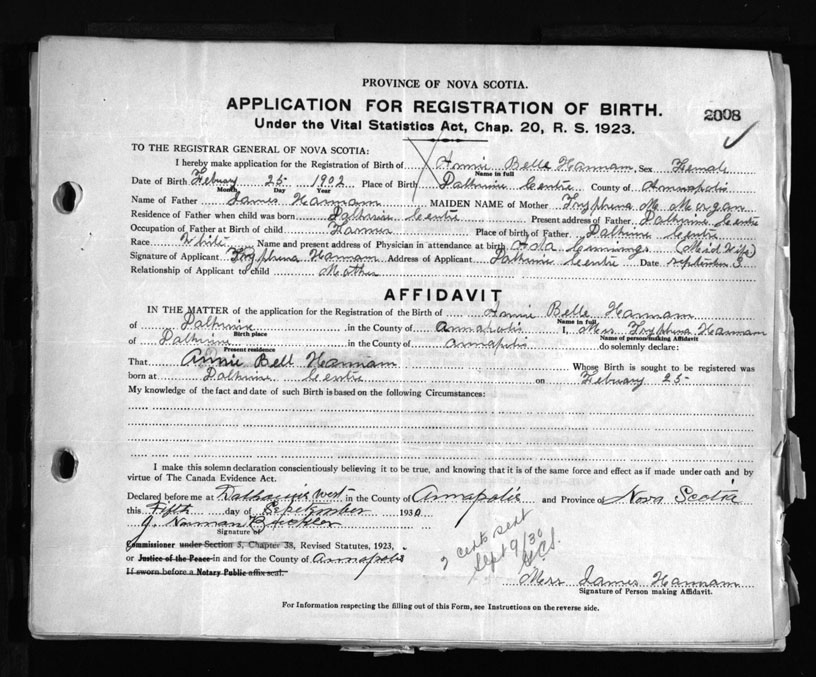 PROVINCE OF NOVA SCOTIA.
APPLICATION FOR REGISTRATION OF BIRTH.
2008
Under the Vital Statistics Act, Chap. 20, R. S. 1923.
TO THE REGISTRAR GENERAL OF NOVA SCOTIA:
I hereby make application for the Registration of Birth of Annie Belle Hannam Sex Female
Name in full
Date of Birth February 25 1902 Place of Birth Dalhousie Centre County of Annapolis
Month Day Year
Name of Father James Hannam MAIDEN NAME of Mother Tryphena M. Morgan
Residence of Father when child was born Dalhousie Centre Present address of Father Dalhousie Centre
Occupation of Father at Birth of child Farmer Place of birth of Father Dalhousie Centre
Race White Name and present address of Physician in attendance at birth Ada Cummings (Mid Wife)
Signature of Applicant Tryphena Hannam Address of Applicant Dalhousie Centre Date September 3
Relationship of Applicant to child Mother
AFFIDAVIT
IN THE MATTER of the application for the Registration of the Birth of Annie Belle Hannam
Name in full
of Dalhousie in the County of Annapolis I, Mrs Tryphena Hannam
Birth place Name of person making Affidavit
of Dalhousie in the County of Annapolis do solemnly declare:
Present residence
That Annie Bell Hannam Whose Birth is sought to be registered was
born at Dalhousie Centre on February 25
My knowledge of the fact and date of such Birth is based on the following Circumstances:
I make this solemn declaration conscientiously believing it to be true, and knowing that it is of the same force and effect as if made under oath and by
virtue of The Canada Evidence Act.
Declared before me at Dalhousie West in the County of Annapolis and Province of Nova Scotia
this Fifth day of September 1930
J. Norman Buckler
Signature of
Commissioner under Section 3, Chapter 38, Revised Statutes, 1923,
or Justice of the Peace in and for the County of Annapolis
If sworn before a Notary Public affix seal.
2 cents sent
Sept 9/30
Mrs James Hannam
Signature of Person making Affidavit.
For Information respecting the filling out of this Form, see Instructions on the reverse side.